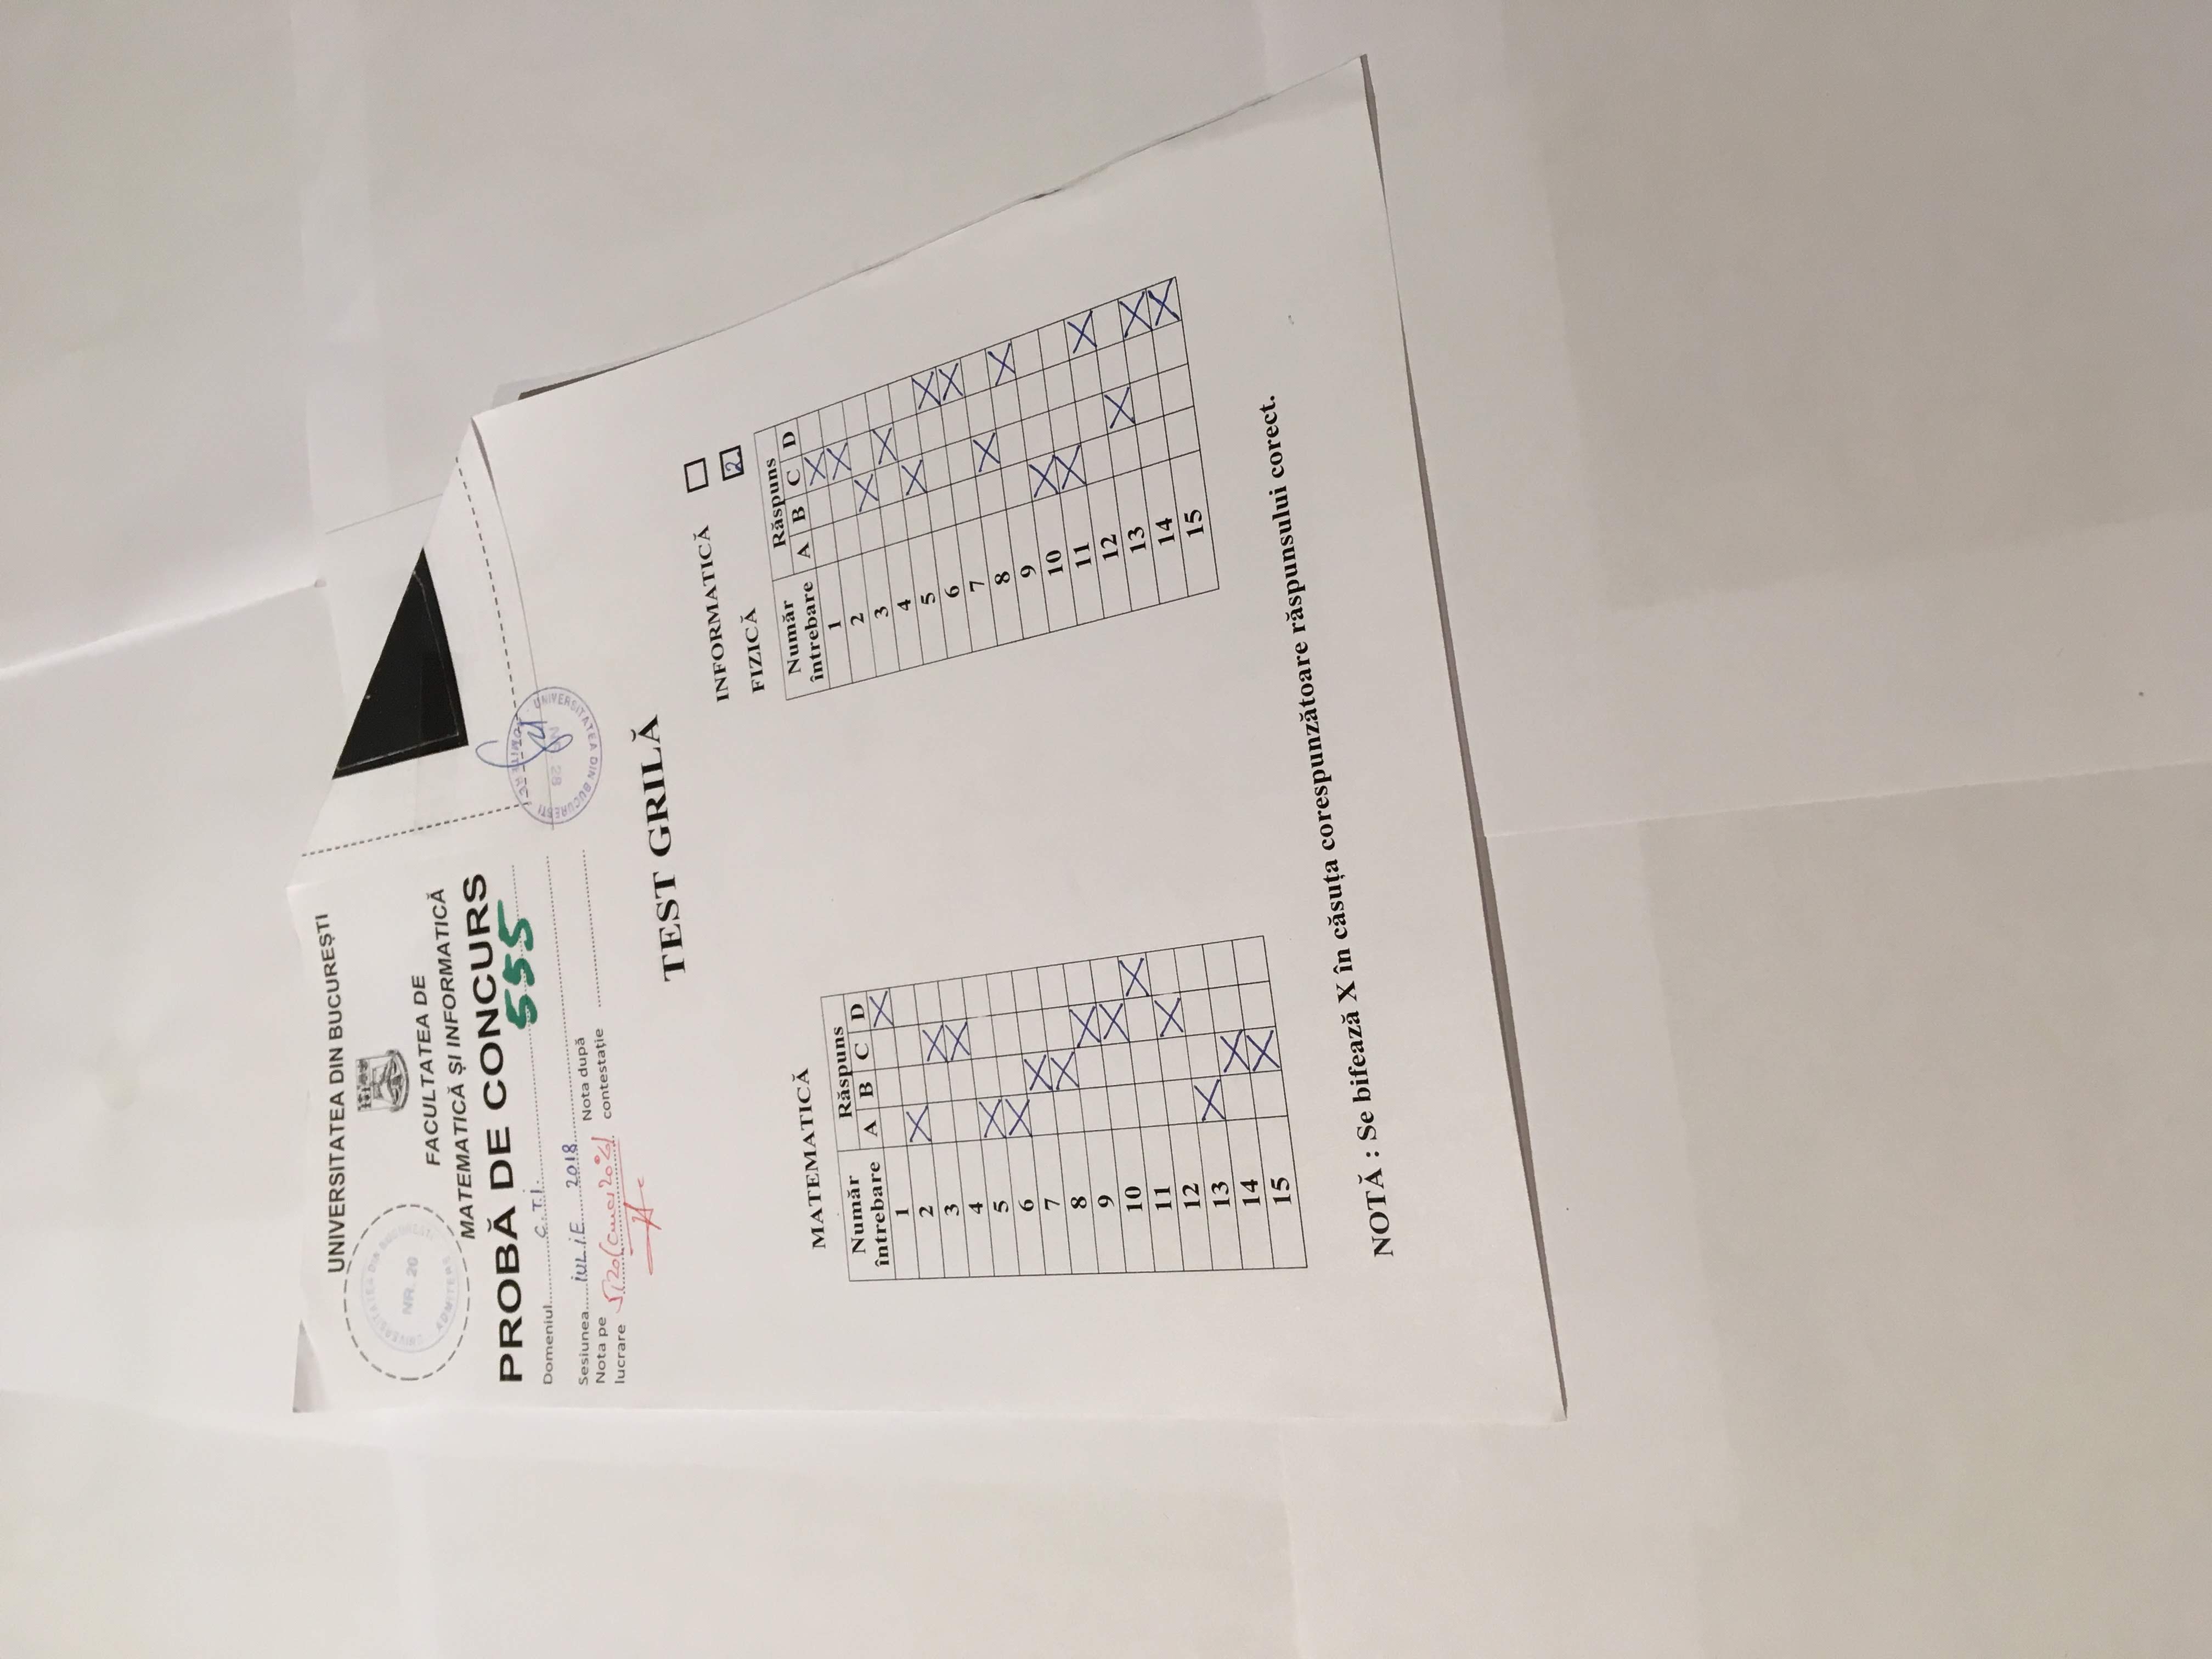 UNIVERSITATEA DIN BUCUREȘTI
UNIVERSITATEA DIN BUCUREȘTI
NR. 26
ADMITERE
FACULTATEA DE
MATEMATICĂ ȘI INFORMATICĂ
PROBĂ DE CONCURS
555
Domeniul C.T.I.
Sesiunea IULIE 2018
Nota pe lucrare 5,20 (cinci 20%)
Nota după contestație
UNIVERSITATEA DIN BUCUREȘTI
ADMITERE
TEST GRILĂ
INFORMATICĂ
FIZICĂ 2
MATEMATICĂ
Număr întrebare Răspuns
A B C D
1 X
2 X
3 X
4 X
5 X
6 X
7 X
8 X
9 X
10 X
11 X
12 X
13 X
14 X
15 X
Număr întrebare Răspuns
A B C D
1 X
2 X
3 X
4 X
5 X
6 X
7 X
8 X
9 X
10 X
11 X
12 X
13 X
14 X
15 X
NOTĂ : Se bifează X în căsuța corespunzătoare răspunsului corect.